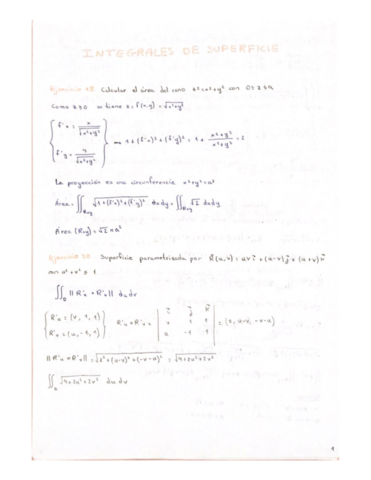 INTEGRALES DE SUPERFICIE
Ejercicio Calcular el área del cono z²=x²+y² con 0≤z≤a
Como z≥0 se tiene z=f(x,y)=√x²+y²
f'x = x/√x²+y²
f'y = y/√x²+y²
1+(f'x)²+(f'y)² = 1+ x²+y²/x²+y² = 2
La proyección es una circunferencia x²+y²=a²
Área = ∬Rxy √1+(f'x)²+(f'y)² dxdy = ∬Rxy √2 dxdy
Área (Rxy) = √2 πa²
Ejercicio Superficie parametrizada por R(u,v) = uv i + (u-v) j + (u+v) k
con u²+v² ≤ 1
∬D ||R'u × R'v|| du dv
R'u = (v, 1, 1)
R'v = (u, -1, 1)
R'u × R'v = | i j k | = (2, u-v, -v-u)
1 1
u -1 1
||R'u × R'v|| = √2²+(u-v)²+(-v-u)² = √4+2u²+2v²
∬D √4+2u²+2v² du dv
1